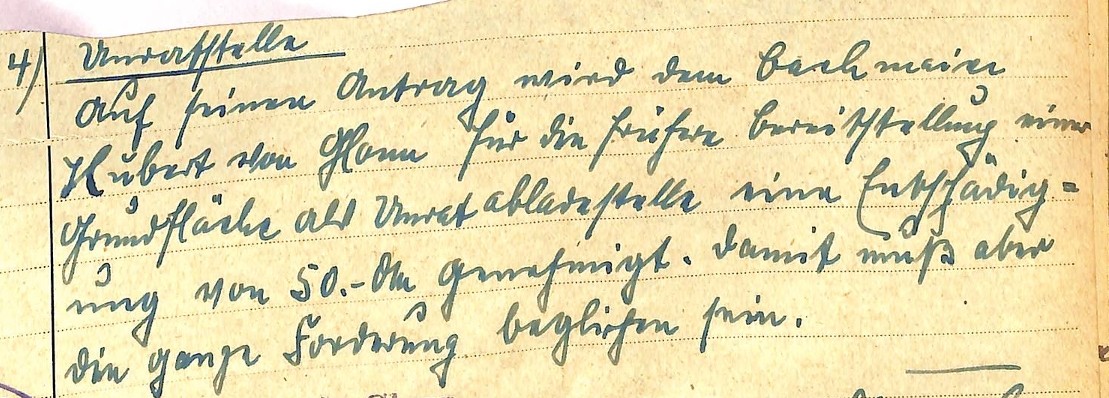 4) Unratstelle
Auf seinen Antrag wird dem Bachmeier
Hubert von Glonn für die frühere Bereitstellung einer
Grundfläche als Unratabladestelle eine Entschädig=
ung von 50.-DM genehmigt. Damit muß aber
die ganze Forderung beglichen sein.